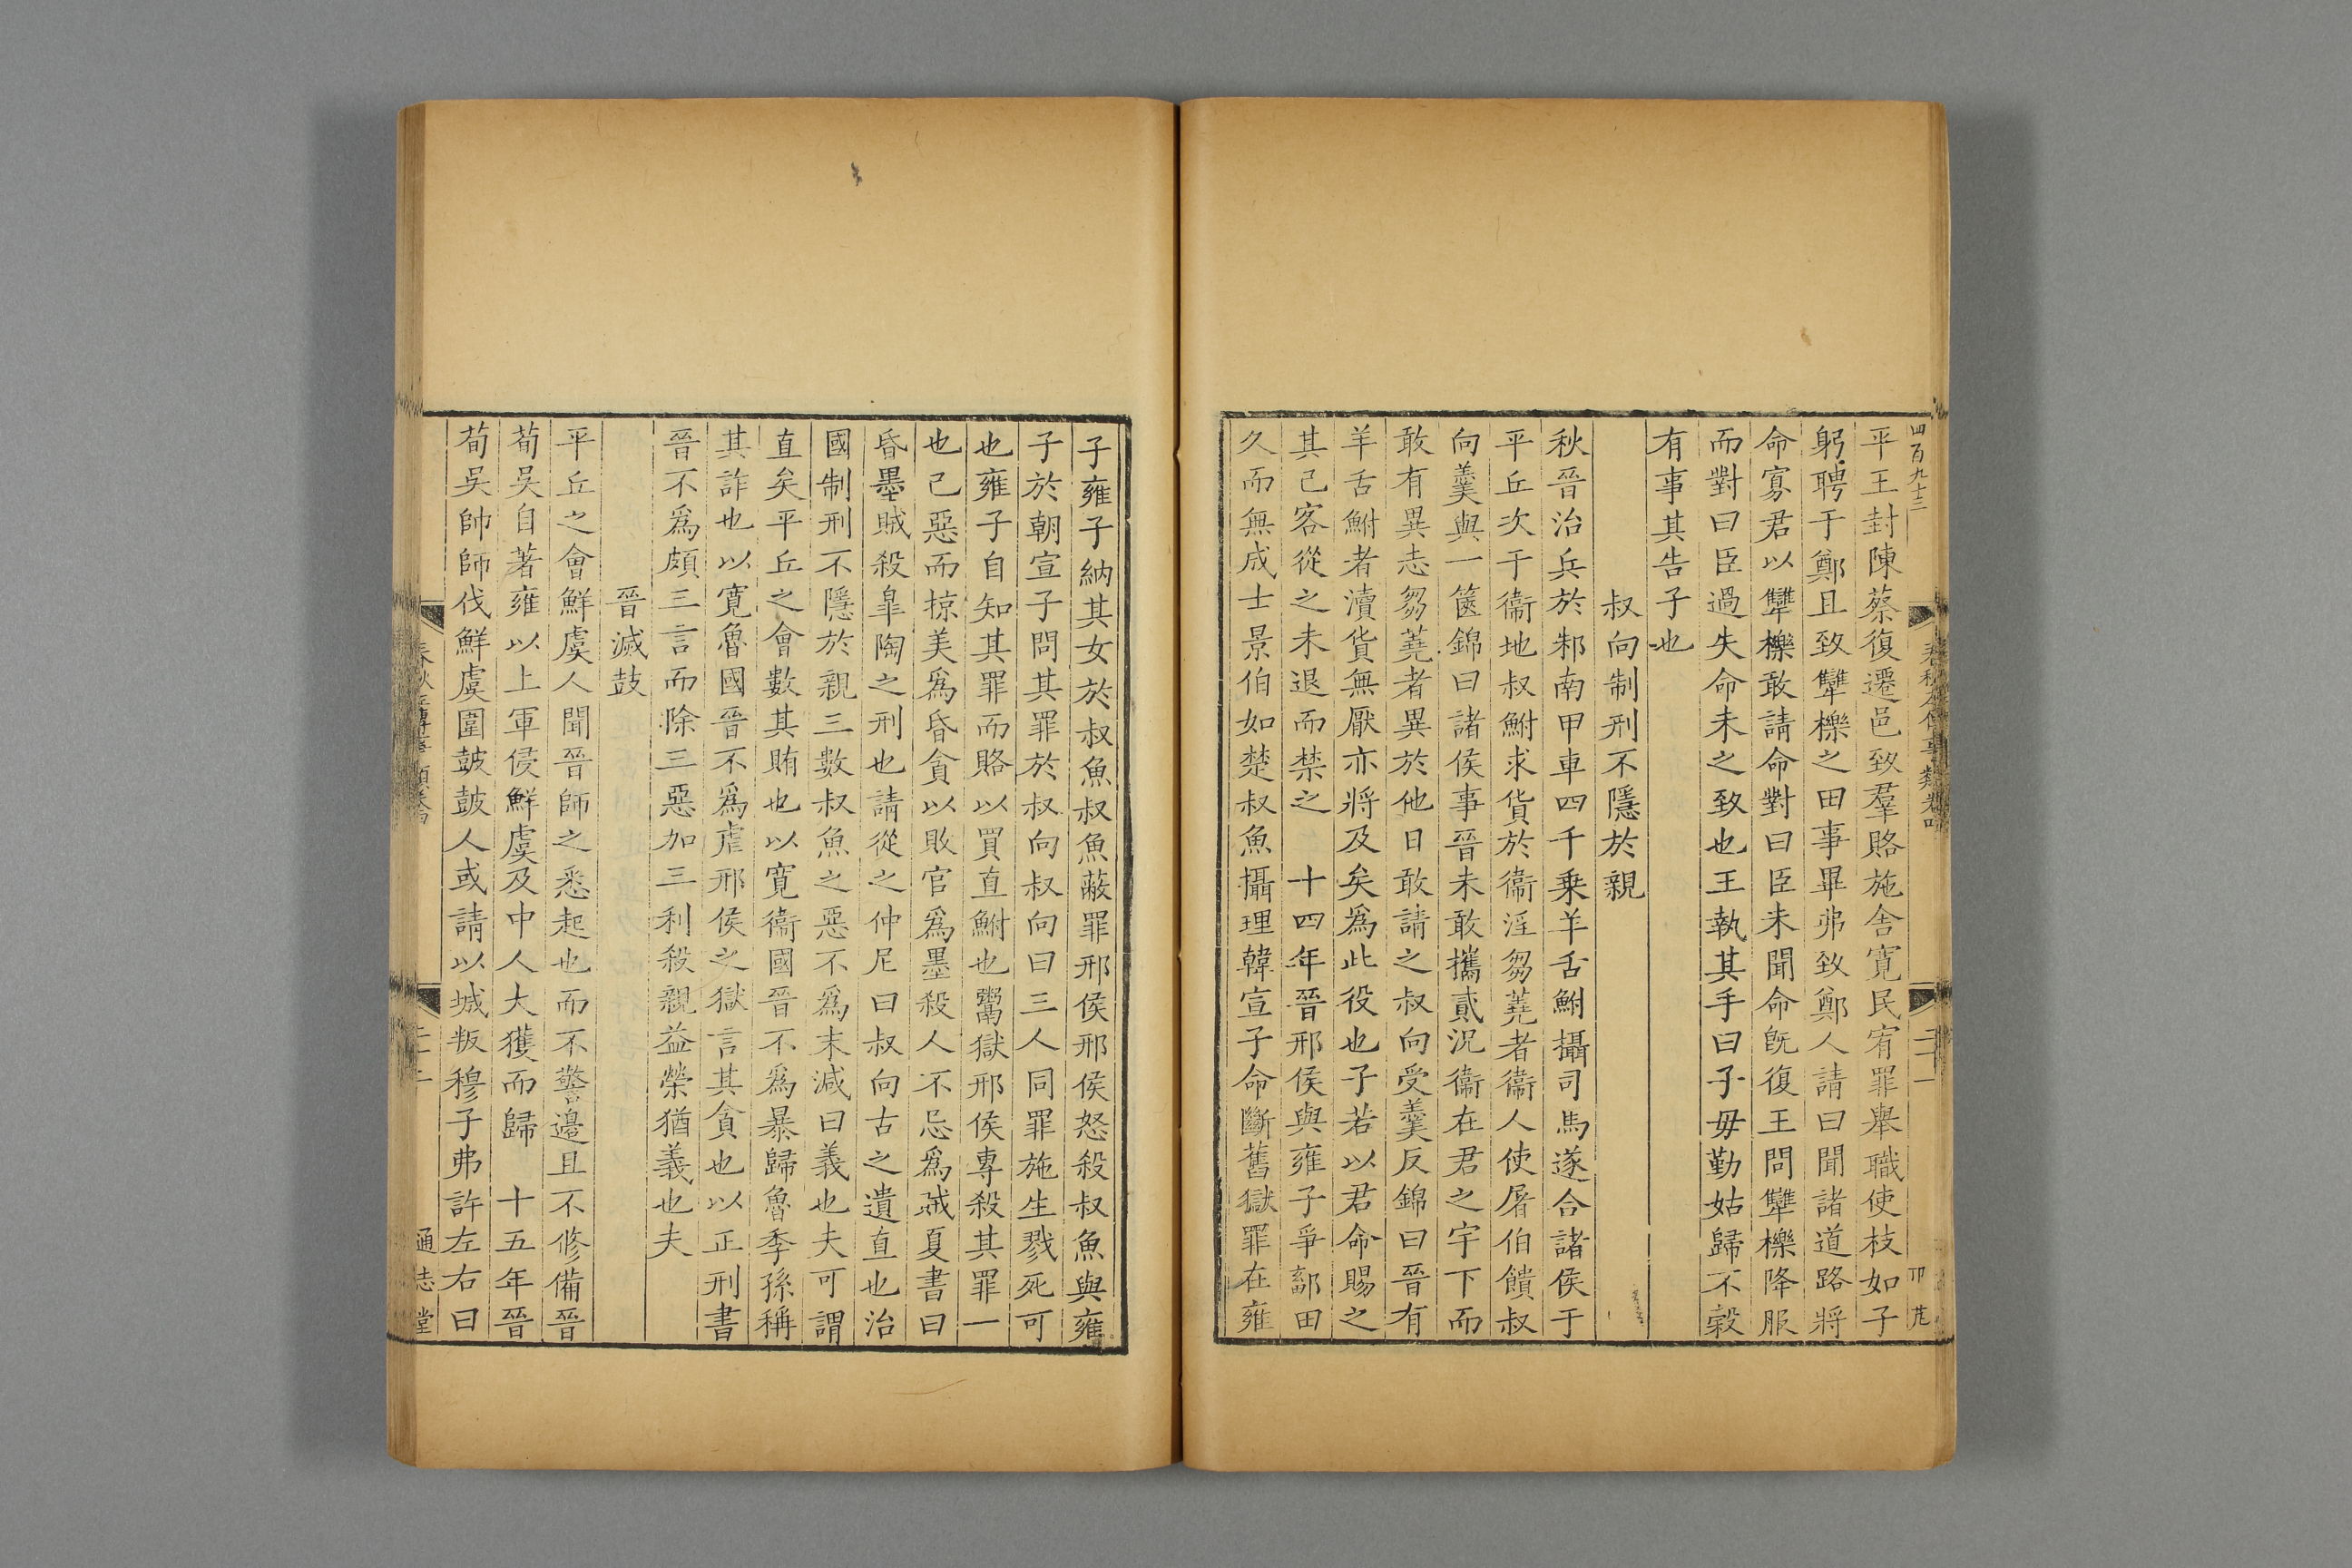 四百九十三
平王封陳蔡復遷邑致羣賂施舍寛民宥罪舉職使枝如子
躬聘于鄭且致犫櫟之田事畢弗致鄭人請曰聞諸道路將
命寡君以犫櫟敢請命對曰臣未聞命旣復王問犫櫟降服
而對曰臣過失命未之致也王執其手曰子毋勤姑歸不穀
有事其告子也
叔向制刑不隱於親
秋晉治兵於邾南甲車四千乗羊舌鮒攝司馬遂合諸侯于
平丘次于衞地叔鮒求貨於衞淫芻蕘者衞人使屠伯饋叔
向羹與一篋錦曰諸侯事晉未敢攜貳況衞在君之宇下而
敢有異志芻蕘者異於他日敢請之叔向受羹反錦曰晉有
羊舌鮒者瀆貨無厭亦將及矣爲此役也子若以君命賜之
其已客從之未退而禁之 十四年晉邢侯與雍子爭鄐田
久而無成士景伯如楚叔魚攝理韓宣子命斷舊獄罪在雍
子雍子納其女於叔魚叔魚蔽罪邢侯邢侯怒殺叔魚與雍
子於朝宣子問其罪於叔向叔向曰三人同罪施生戮死可
也雍子自知其罪而賂以買直鮒也鬻獄邢侯專殺其罪一
也己惡而掠美爲昏貪以敗官爲墨殺人不忌爲賊夏書曰
昏墨賊殺臯陶之刑也請從之仲尼曰叔向古之遺直也治
國制刑不隱於親三數叔魚之惡不爲末減曰義也夫可謂
直矣平丘之會數其賄也以寛衞國晉不爲暴歸魯季孫稱
其詐也以寛魯國晉不爲虐邢侯之獄言其貪也以正刑書
晉不爲頗三言而除三惡加三利殺親益榮猶義也夫
晉滅鼓
平丘之會鮮虞人聞晉師之悉起也而不警邊且不修備晉
荀吳自著雍以上軍侵鮮虞及中人大獲而歸 十五年晉
荀吳帥師伐鮮虞圍鼓鼓人或請以城叛穆子弗許左右曰
通志堂